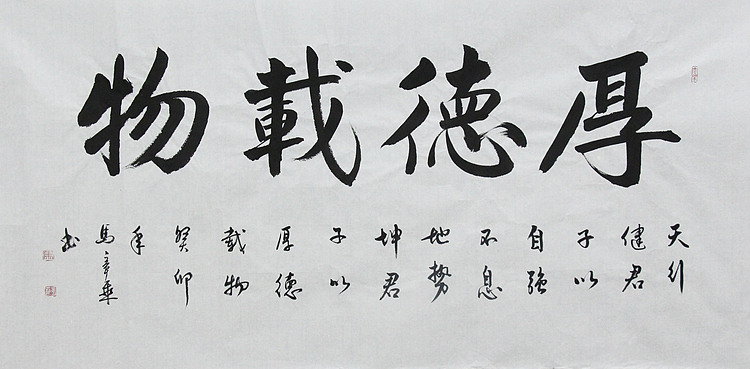 厚德載物
天行
健君
子以
自強
不息
地勢
坤君
子以
厚德
載物
癸卯
年
馬
書